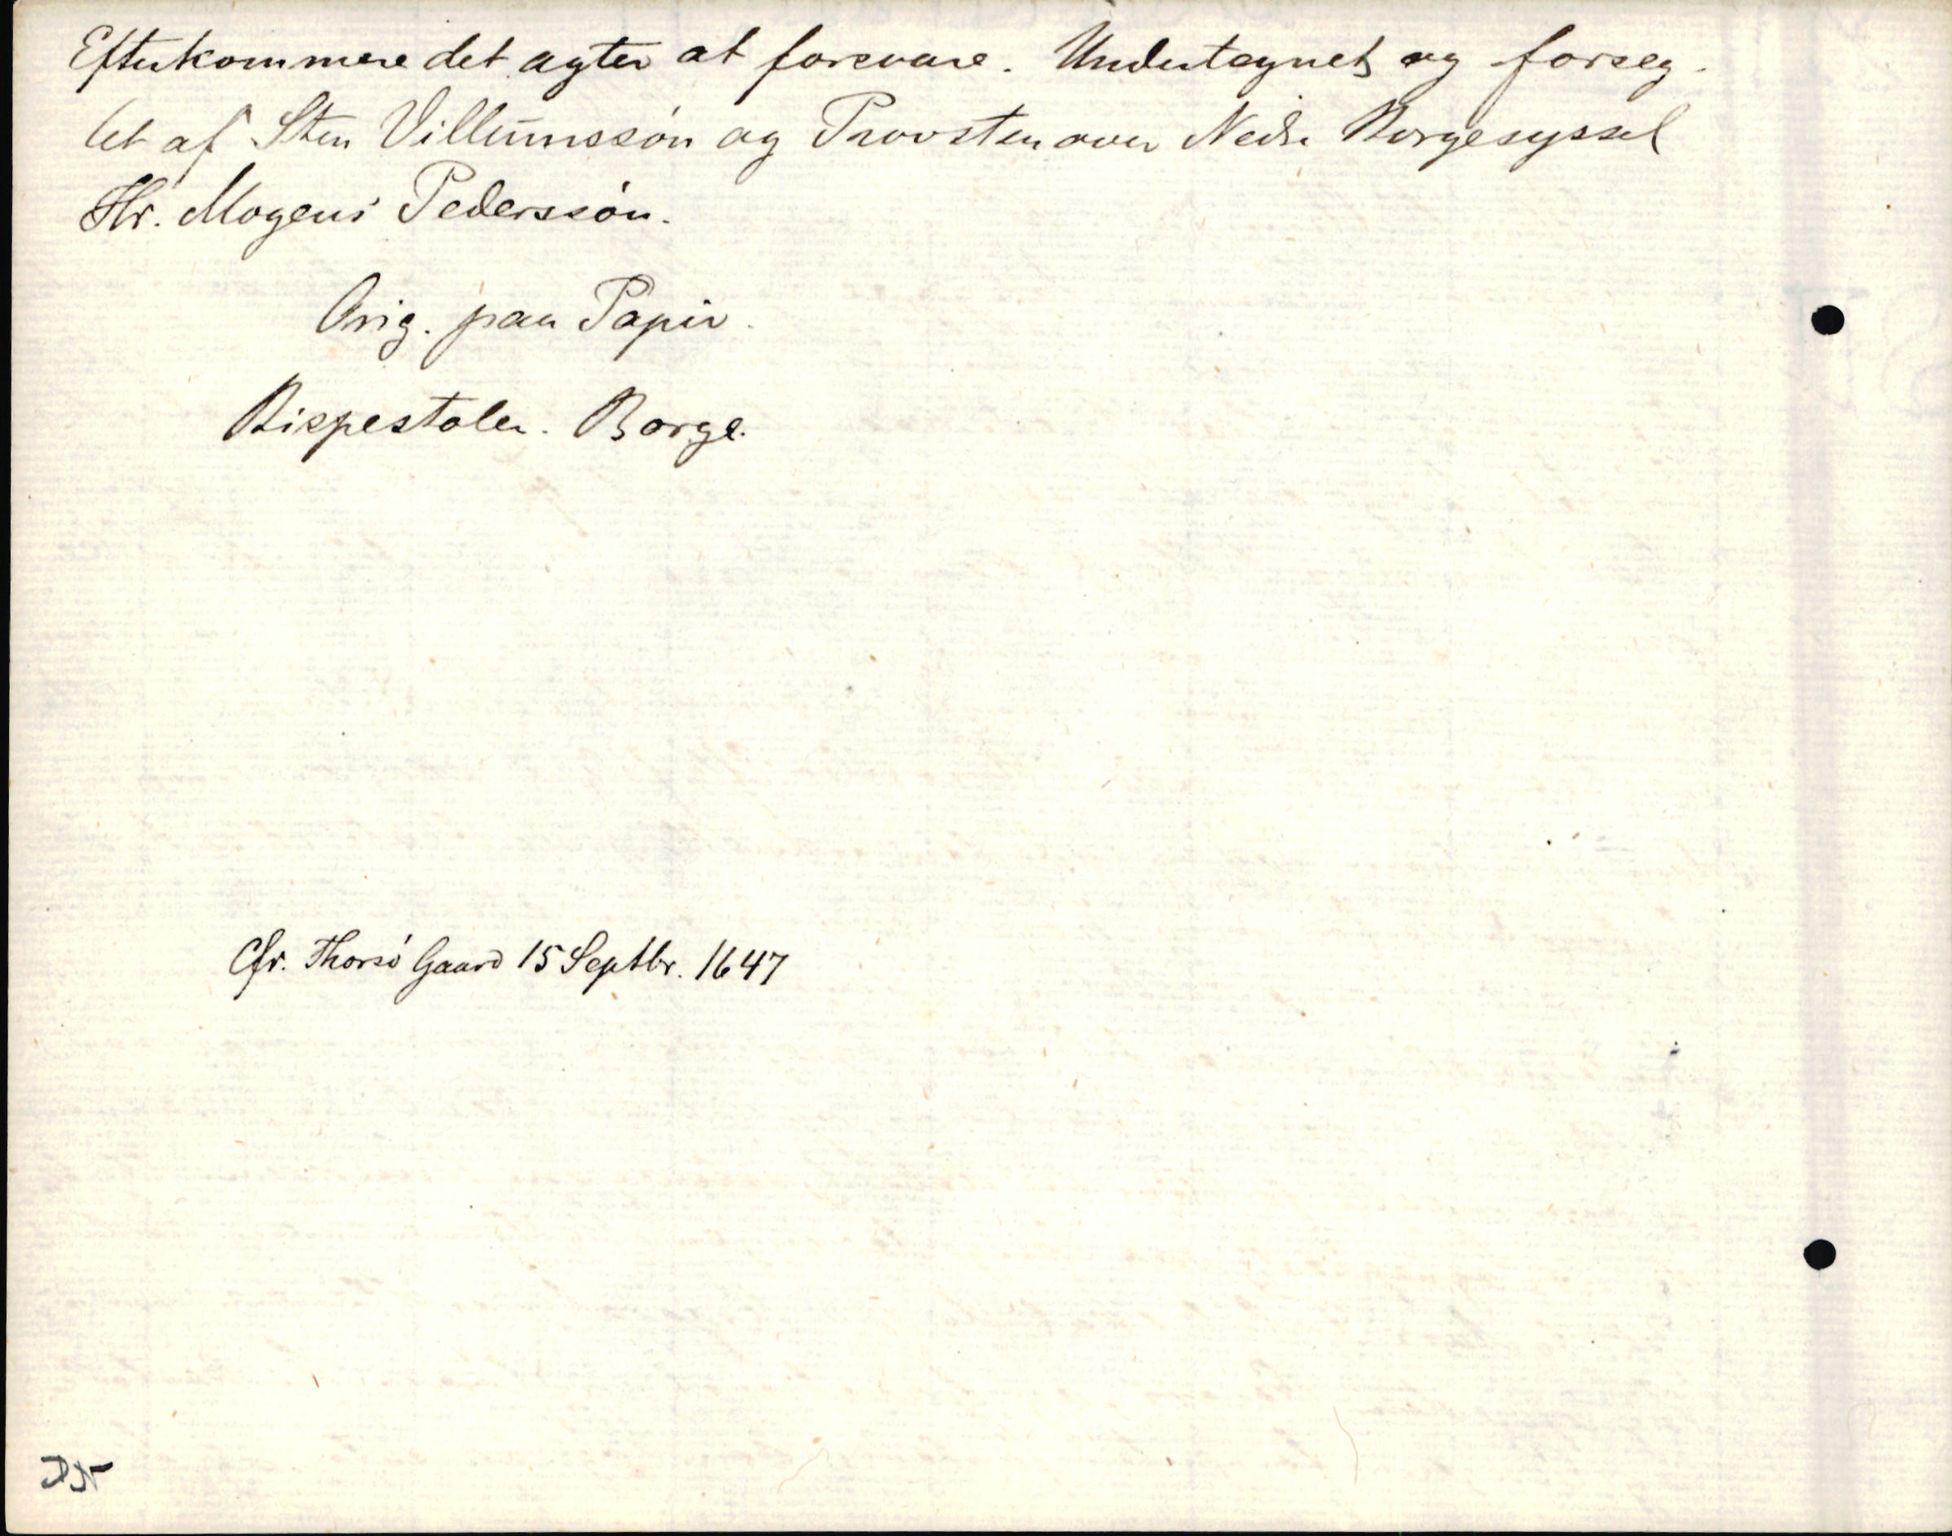 Efterkommere det agter at forsvare. Undertegnet og forseg-
let af Sten Villumssøn og Provsten over Nedre Borgesyssel
Hr. Mogens Pederssøn.
Orig. paa Papir.
Bispestolen. Borge.
Cfr. Thorsø Gaard 15 Septbr. 1647
DN